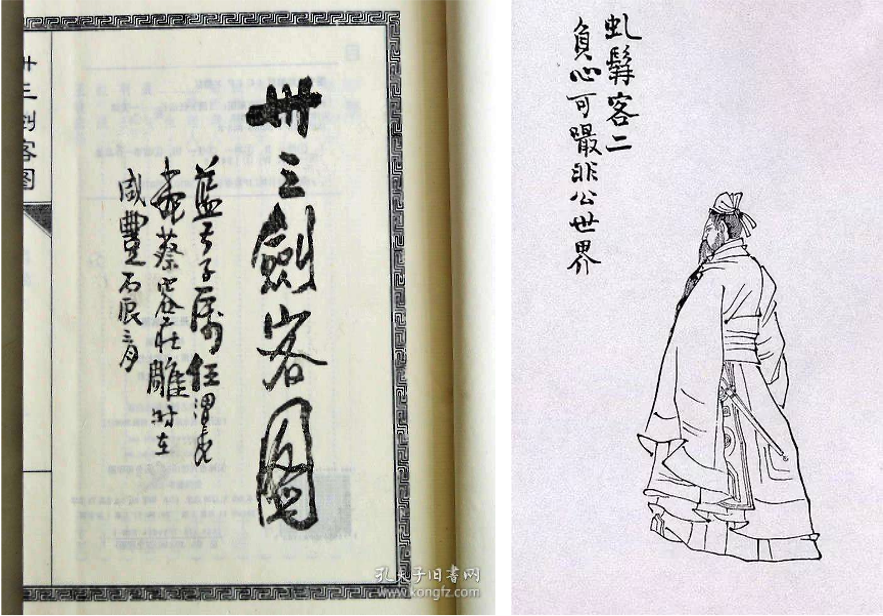 卅三剑客图
卅三劍客圖
藍叔子属任渭長
畫蔡容莊雕时在
咸豐丙辰月
孔夫子旧書网
www.kongfz.com
虬髯客二
負心可嘬非公世界